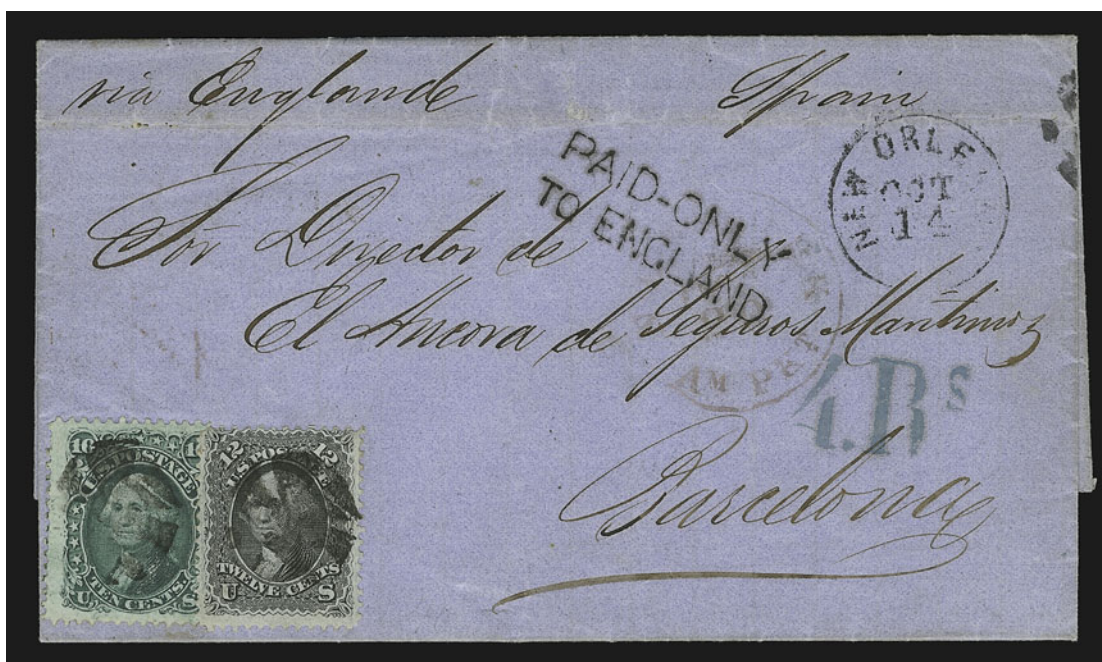 via Englande Spain
PAID-ONLY
TO ENGLAND
NEW ORLE
OCT
14
Sor Director de
El Ancora de Seguros Maritimos
AM PKT
4.Rs
Barcelona
10
U.S. POSTAGE
TEN CENTS.
U S
12 12
U.S. POSTAGE
TWELVE CENTS
U S